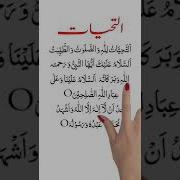 التحيات
اَلتَّحِيَّاتُ لِلّٰهِ وَالصَّلَوٰتُ وَالطَّيِّبٰتُ
اَلسَّلَامُ عَلَيْكَ اَيُّهَا النَّبِيُّ وَرَحْمَةُ
اللّٰهِ وَبَرَكَاتُهٗ اَلسَّلَامُ عَلَيْنَا وَعَلٰى
عِبَادِ اللّٰهِ الصّٰلِحِيْنَ
اَنْ لَّا اِلٰهَ اِلَّا اللّٰهُ وَاَشْهَدُ
عَبْدُهٗ وَرَسُوْلُهٗ